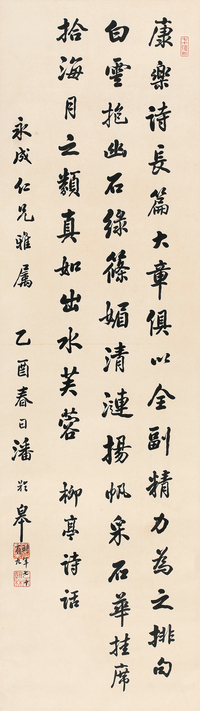 康樂詩長篇大章俱以全副精力為之排句
白雲抱幽石綠篠媚清漣揚帆采石華挂席
拾海月之類真如出水芙蓉 柳亭詩話
永成仁兄雅屬 乙酉春日潘齡皋
時年七十有九